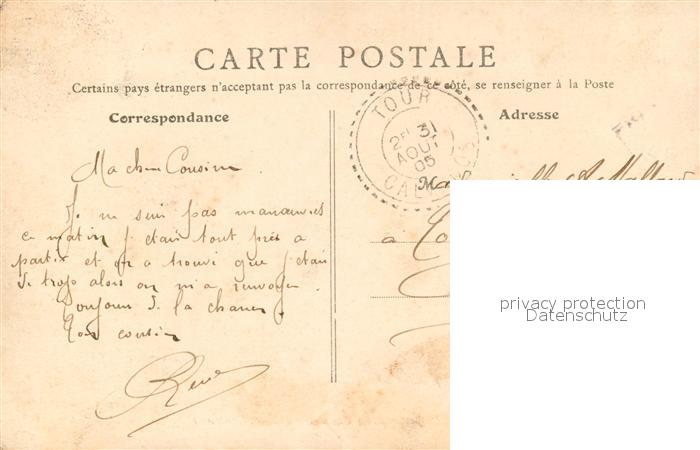 CARTE POSTALE
Certains pays étrangers n'acceptent pas la correspondance de ce côté, se renseigner à la Poste
Correspondance
Adresse
TOUR
2E 31
AOUT
05
Ma chère Cousine
Je ne suis pas manœuvres
ce matin j'étais tout près a
partir et on a trouvé que j'étais
de trop alors on m'a renvoyer
toujours de la chance
Ton cousin
René
a
privacy protection
Datenschutz